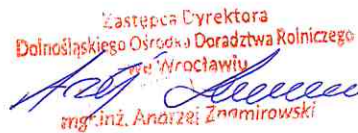 Zastępca Dyrektora
Dolnośląskiego Ośrodka Doradztwa Rolniczego
we Wrocławiu
mgr inż. Andrzej Znamirowski